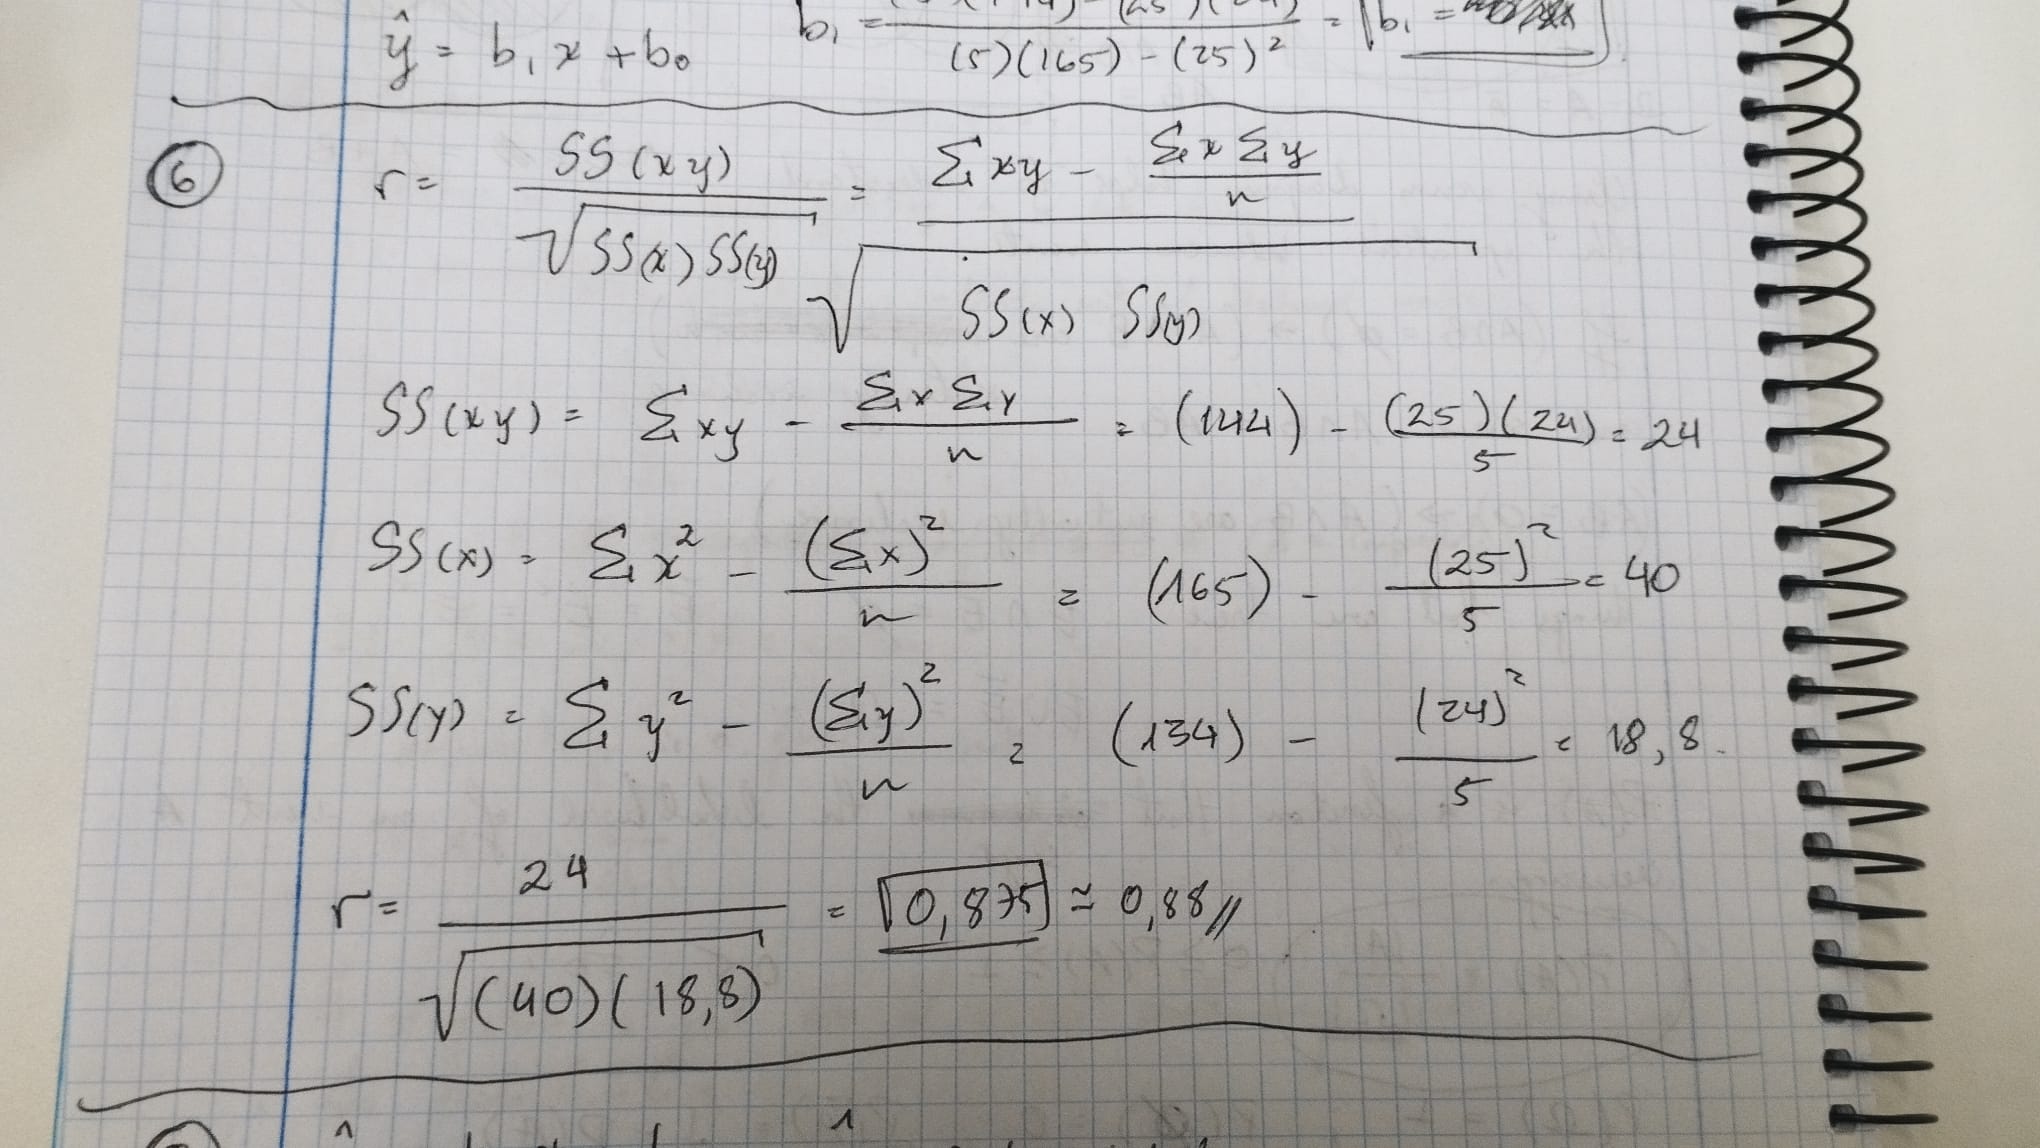 ŷ = b₁x + b₀ b₁ = / (5)(165) - (25)² = b₁ =
⑥ r = SS(xy) / √SS(x) SS(y) = Σxy - Σx Σy / n / √SS(x) SS(y)
SS(xy) = Σxy - Σx Σy / n = (144) - (25)(24) / 5 = 24
SS(x) = Σx² - (Σx)² / n = (165) - (25)² / 5 = 40
SS(y) = Σy² - (Σy)² / n = (134) - (24)² / 5 = 18,8
r = 24 / √(40)(18,8) = 0,875 ≃ 0,88 //